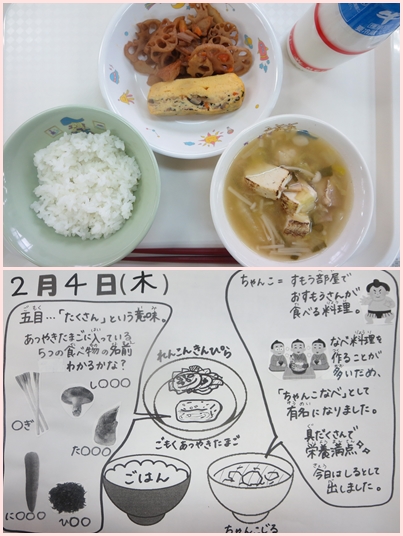 2月4日(木)
五目…「たくさん」という意味。
あつやきたまごに入っている
5つの食べ物の名前
わかるかな？
し○○○
○ぎ
た○○○
に○○○
ひ○○
れんこんきんぴら
ごもくあつやきたまご
ごはん
ちゃんこじる
ちゃんこ＝すもう部屋で
おすもうさんが
食べる料理。
なべ料理を
作ることが
多いため、
「ちゃんこなべ」として
有名になりました。
具だくさんで
栄養満点
今日はしるとして
出しました。